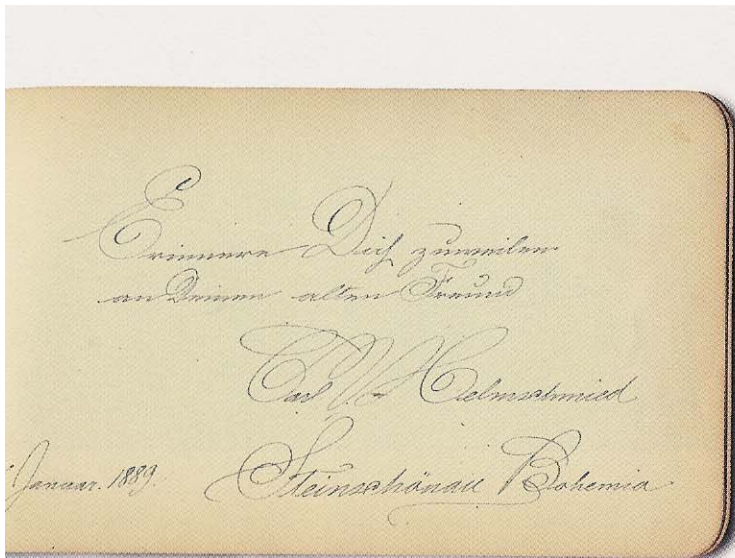 Erinnere Dich zuweilen
an Deinen alten Freund
Carl V. Helmschmied
Januar. 1889.
Steinschönau Bohemia